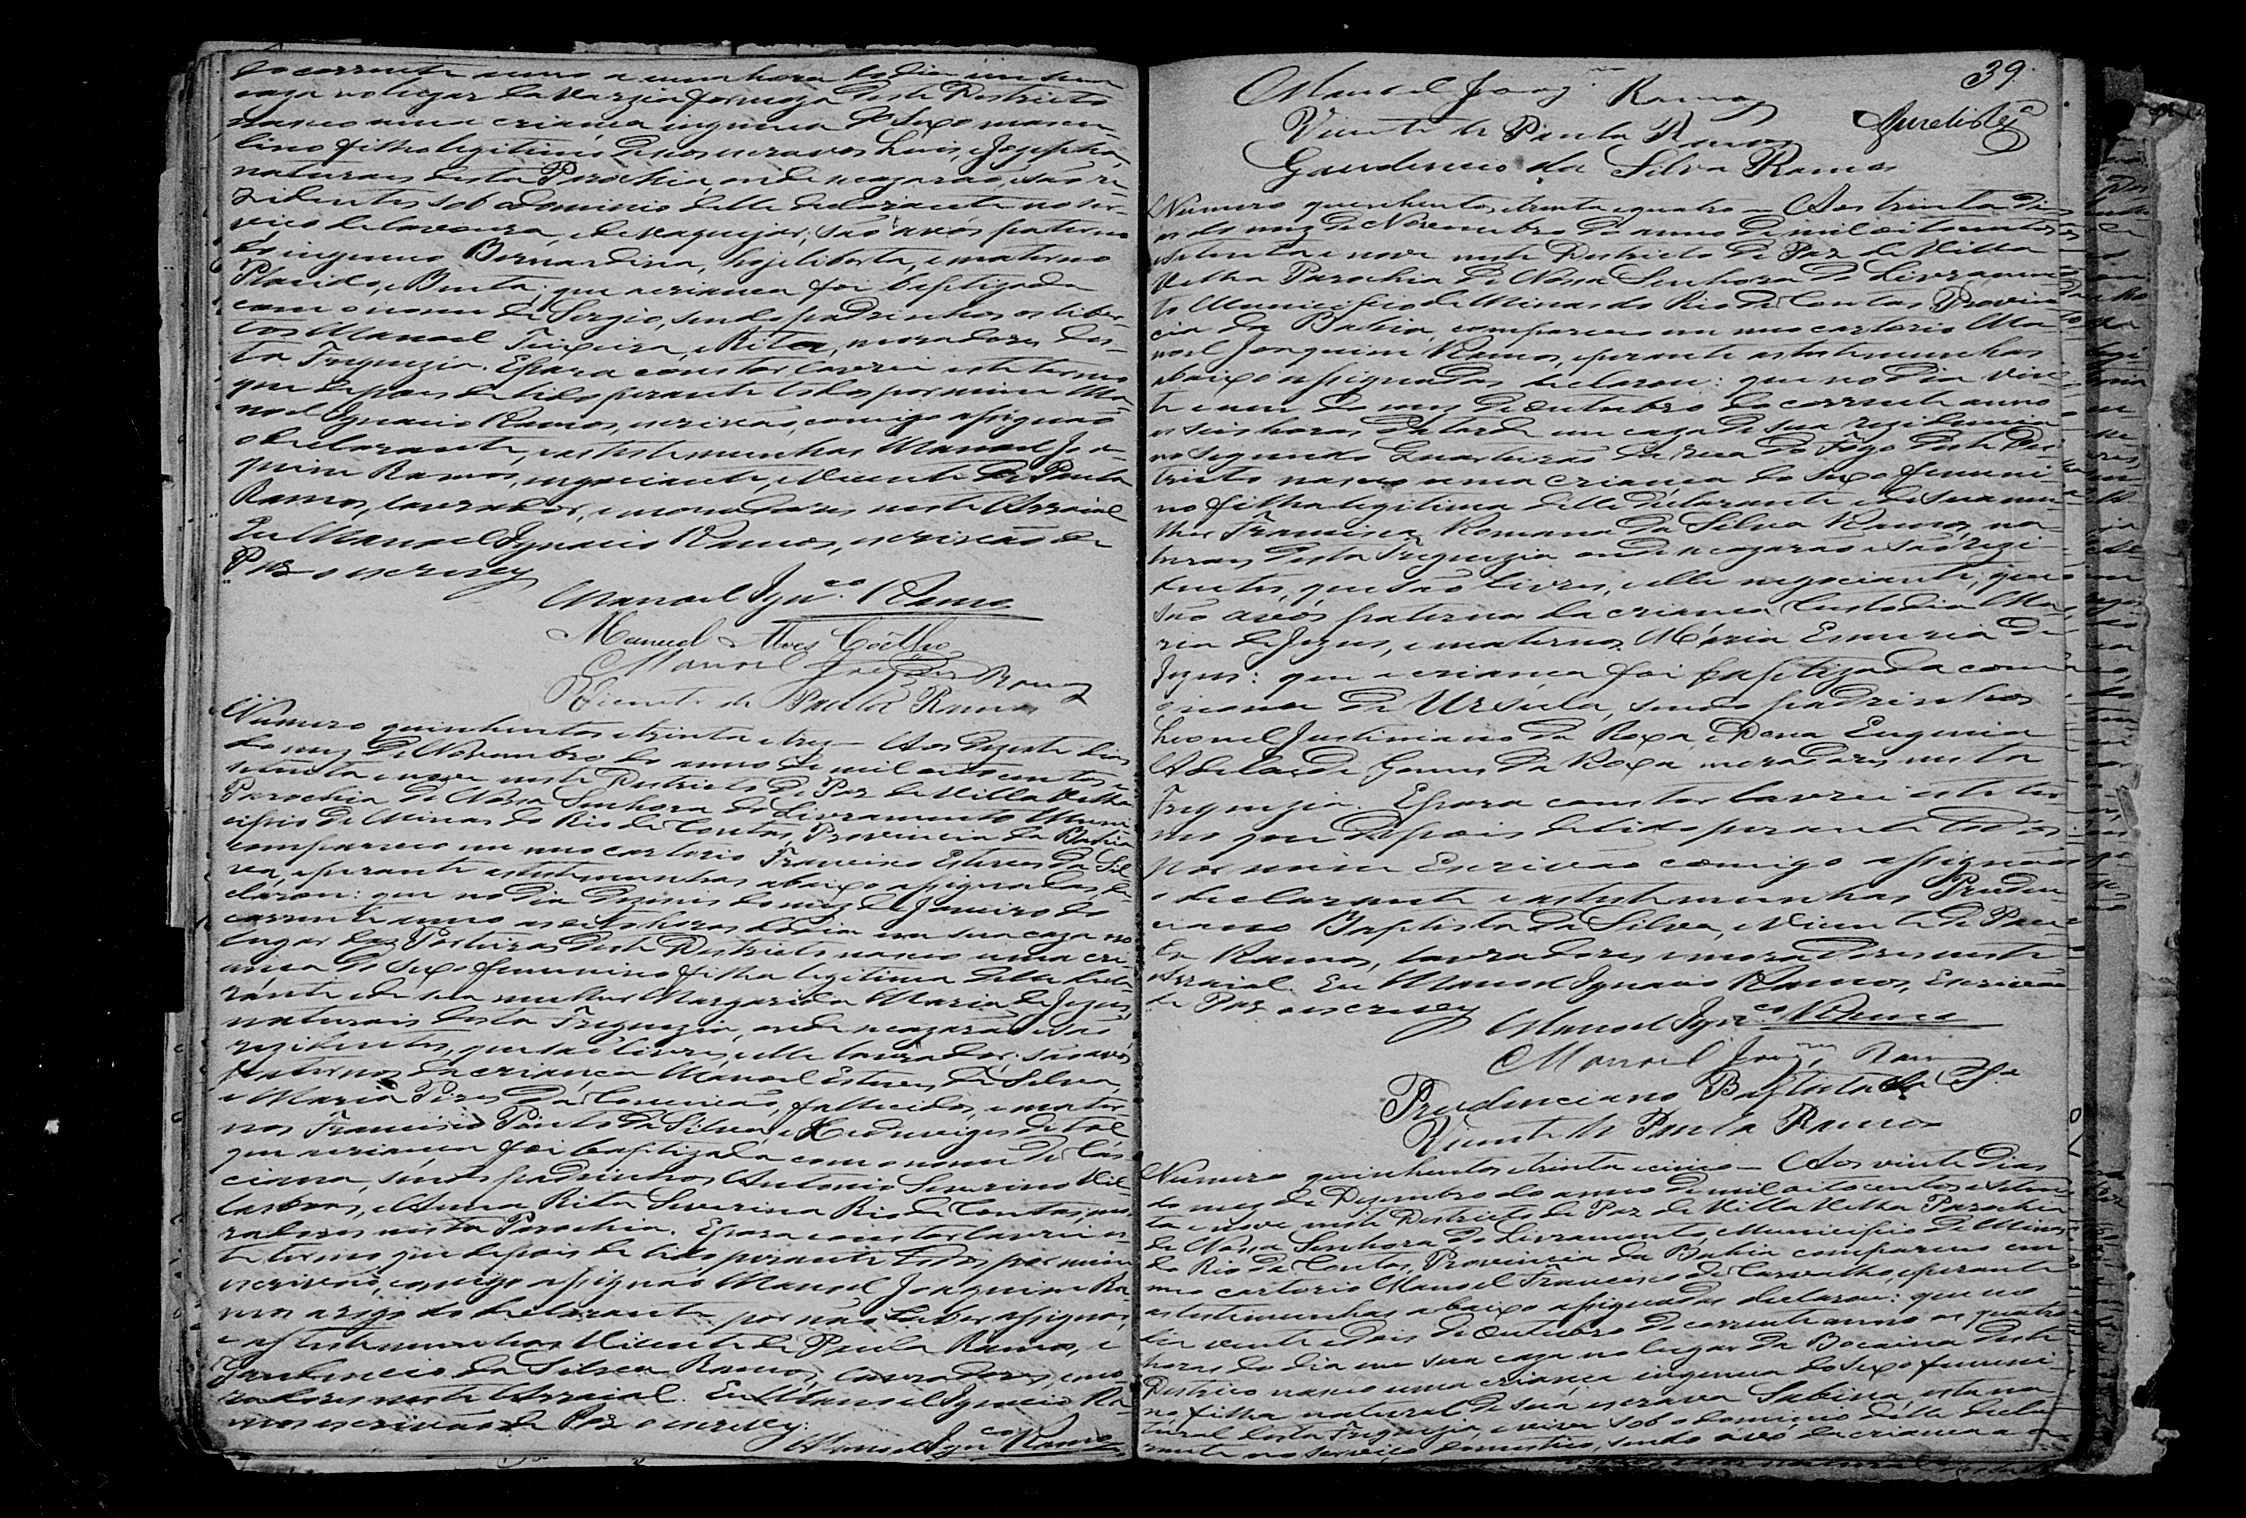 do corrente anno a uma hora do dia em sua
caza no lugar da Varzia formoza deste Districto
nasceo uma criança ingenua do sexo mascu-
lino filho legitimo de seos escravos Luis, e Josepha,
naturaes desta Parochia, onde se cazarão, e são re-
zidentes sob o dominio delle declarante no ser-
viço de lavoura, e de vaquejar; são avós paterno
do ingenuo Bernardina, hoje liberta, e materno
Placido, e Benta; que a criança foi baptizada
com o nome de Sergio, sendo padrinhos os liber-
tos Manoel Teixeira, e Rita, moradores des-
ta Freguezia. E para constar lavrei este termo
que depois de lido perante todos por mim Ma-
noel Ignacio Ramos, escrivão, comigo assignão
o declarante, e as testemunhas Manoel Joa-
quim Ramos, negociante, e Vicente de Paula
Ramos, lavrador, e moradores neste Arraial
Eu Manoel Ignacio Ramos, escrivão de
Paz o escrevy
Manoel Ign.co Ramos
Manuel Alves Coêlho
Manoel Joaq.m Ramos
Vicente de Paula Ramos
Numero quinhentos e trinta e trez — Aos dezesete dias
do mez de Novembro do anno de mil oito centos e
setenta e nove neste Districto de Paz de Villa Velha
Parochia de Nossa Senhora do Livramento Muni-
cipio de Minas do Rio de Contas, Provincia da Bahia
compareceo em meo cartorio Francisco Esteves da Sil-
va, e perante as testemunhas abaixo assignadas, de-
clarou: que no dia dezeseis do mez de Janeiro do
corrente anno as oito horas do dia em sua caza no
lugar das Porteiras deste Districto nasceo uma cri-
ança do sexo femenino filha legitima delle decla-
rante e de sua mulher Margarida Maria de Jezus,
naturais desta Freguezia, onde se cazarão e são
rezidentes, que são livres, e elle lavrador; são avós
paternos da criança Manoel Esteves da Silva,
e Maria Pires da Conceição, fallecidos, e mater-
nos Francisco Pinto da Silva, e Heduviges de tal
que a criança foi baptizada com o nome de Cas-
ciana, sendo padrinhos Antonio Severino Vil-
lasboas, e Anna Rita Severina Rio de Contas, mo-
radores nesta Parochia. E para constar lavrei es-
te termo que depois de lido perante todos por mim
escrivão, comigo assignão Manoel Joaquim Ra-
mos a rogo do declarante por não saber assignar,
e as testemunhas Vicente de Paula Ramos, e
Gaudencio da Silva Ramos, lavradores, e mo-
radores neste Arraial. Eu Manoel Ignacio Ra-
mos escrivão de Paz o escrevy.
Manoel Ign.co Ramos
39
Manoel Joaq.m Ramos
Vicente de Paula Ramos
Gaudencio da Silva Ramos
Numero quinhentos e trinta e quatro — Aos trinta dias
do mez de Novembro do anno de mil oitocentos
e setenta e nove neste Districto de Paz de Villa
Velha Parochia de Nossa Senhora do Livramen-
to Municipio de Minas do Rio de Contas Provin-
cia da Bahia, compareceo em meo cartorio Ma-
noel Joaquim Ramos, e perante as testemunhas
abaixo assignadas declarou: que no dia vin-
te e um do mez de Outubro do corrente anno
as seis horas da tarde em caza de sua rezidencia
no segundo Quarteirão da rua do Fogo deste Dis-
tricto nasceo uma criança do sexo femeni-
no filha legitima delle declarante e de sua mu-
lher Francisca Romana da Silva Ramos, na-
turaes desta Freguezia onde se cazarão e são rezi-
dentes, que são livres, e elle negociante; que
são avós paternos da criança Custodia Ma-
ria de Jezus, e maternos Maria Esmeria de
Jezus: que a criança foi baptizada com
o nome de Ursula, sendo padrinhos
Leonel Justiniano da Roxa, e Dona Eugenia
Adelaide Gomes da Roxa moradores nesta
Freguezia. E para constar lavrei este ter-
mo que depois de lido perante todos
por mim Escrivão comigo assignão
o declarante e as testemunhas Pruden-
ciano Baptista da Silva, e Vicente de Pau-
la Ramos, lavradores e moradores neste
Arraial. Eu Manoel Ignacio Ramos, Escrivão
de Paz o escrevy
Manoel Ign.co Ramos
Manoel Joaq.m Ramos
Prudenciano Baptista da S.a
Vicente de Paula Ramos
Numero quinhentos e trinta e cinco — Aos vinte dias
do mez de Dezembro do anno de mil oitocentos e seten-
ta e nove neste Districto de Paz de Villa Velha Parochia
de Nossa Senhora do Livramento, Municipio de Minas
do Rio de Contas, Provincia da Bahia compareceo em
meo cartorio Manoel Francisco de Carvalho, e perante
as testemunhas abaixo assignadas declarou: que no
dia vinte e dois de Outubro do corrente anno as quatro
horas do dia em sua caza no lugar da Bocaina deste
Districto nasceo uma criança ingenua do sexo femeni-
no filha natural de sua escrava Sabina, esta na-
tural desta Freguezia, e vive sob o dominio delle decla-
rante no serviço domestico, sendo avó da criança a